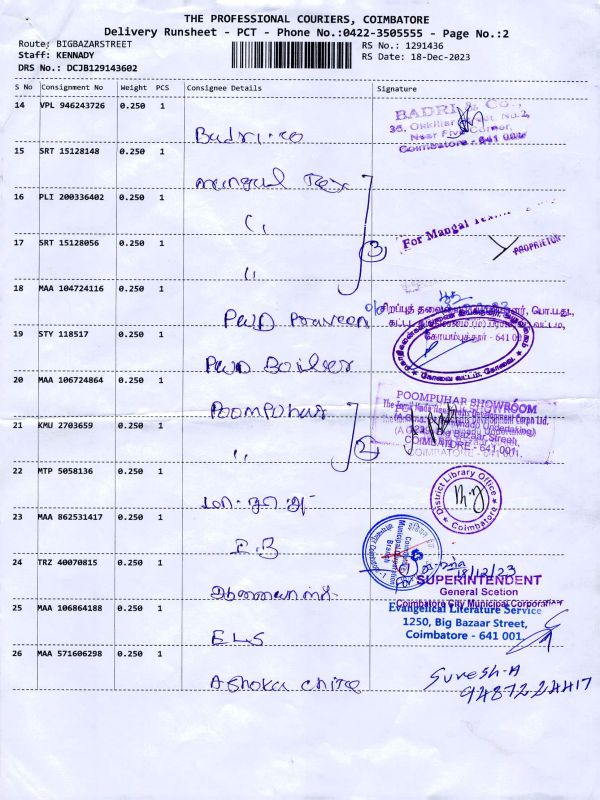 THE PROFESSIONAL COURIERS, COIMBATORE
Delivery Runsheet - PCT - Phone No.:0422-3505555 - Page No.:2
Route: BIGBAZARSTREET
Staff: KENNADY
DRS No.: DCJB129143602
RS No.: 1291436
RS Date: 18-Dec-2023
S No Consignment No Weight PCS Consignee Details Signature
14 VPL 946243726 0.250 1
Badri. co
BADRI & Co.,
Near Five Corner,
Coimbatore - 641 001
15 SRT 15128148 0.250 1
Mangal Tex
16 PLI 200336402 0.250 1
"
3
For Mangal
PROPRIETOR
17 SRT 15128056 0.250 1
"
18 MAA 104724116 0.250 1
PWD Praveen
கோயம்புத்தூர் - 641 001
19 STY 118517 0.250 1
PWD Boiler
20 MAA 106724864 0.250 1
Poompuhar
POOMPUHAR SHOWROOM
Big Bazaar Street,
COIMBATORE - 641 001.
21 KMU 2703659 0.250 1
"
2
22 MTP 5058136 0.250 1
District Library Office
Coimbatore
23 MAA 862531417 0.250 1
I.B
18/12/23
24 TRZ 40070815 0.250 1
SUPERINTENDENT
General Scetion
Coimbatore City Municipal Corporation
25 MAA 106864188 0.250 1
ELS
Evangelical Literature Service
1250, Big Bazaar Street,
Coimbatore - 641 001.
26 MAA 571606298 0.250 1
Ashoka
Suresh.A